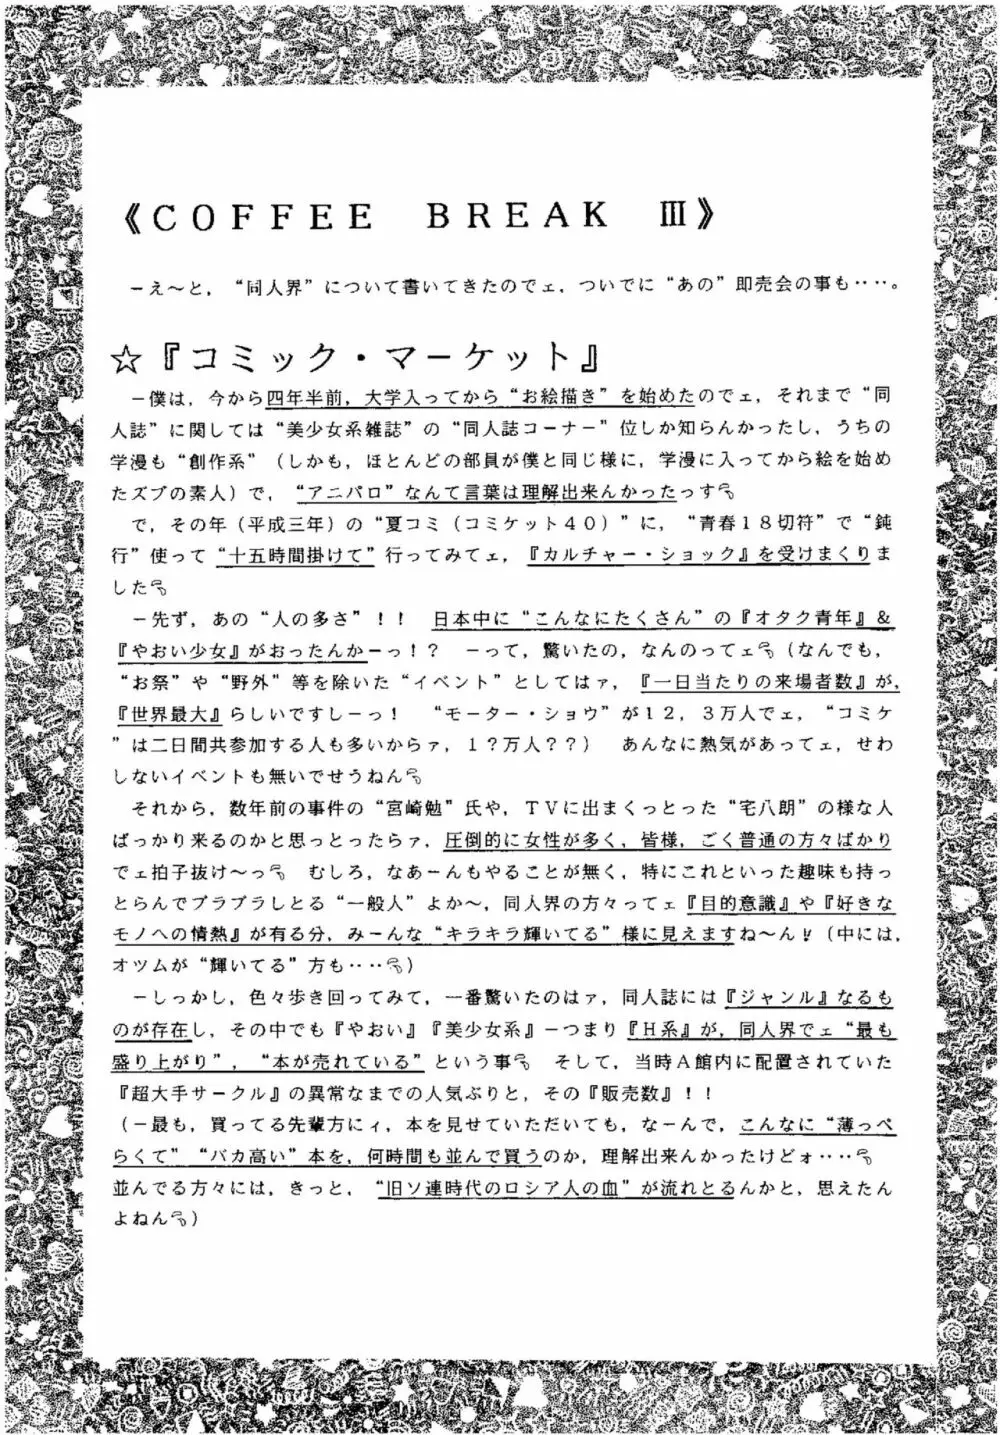 《ＣＯＦＦＥＥ　ＢＲＥＡＫ　Ⅲ》
－え～と，“同人界”について書いてきたのでェ，ついでに“あの”即売会の事も‥‥。
☆『コミック・マーケット』
－僕は，今から四年半前，大学入ってから“お絵描き”を始めたのでェ，それまで“同
人誌”に関しては“美少女系雑誌”の“同人誌コーナー”位しか知らんかったし，うちの
学漫も“創作系”（しかも，ほとんどの部員が僕と同じ様に，学漫に入ってから絵を始め
たズブの素人）で，“アニパロ”なんて言葉は理解出来んかったっす
で，その年（平成三年）の“夏コミ（コミケット４０）”に，“青春１８切符”で“鈍
行”使って“十五時間掛けて”行ってみてェ，『カルチャー・ショック』を受けまくりま
した
－先ず，あの“人の多さ”！！　日本中に“こんなにたくさん”の『オタク青年』＆
『やおい少女』がおったんかーっ！？　－って，驚いたの，なんのってェ（なんでも，
“お祭”や“野外”等を除いた“イベント”としてはァ，『一日当たりの来場者数』が，
『世界最大』らしいですしーっ！　“モーター・ショウ”が１２，３万人でェ，“コミケ
”は二日間共参加する人も多いからァ，１？万人？？）　あんなに熱気があってェ，せわ
しないイベントも無いでせうねん
それから，数年前の事件の“宮崎勉”氏や，ＴＶに出まくっとった“宅八朗”の様な人
ばっかり来るのかと思っとったらァ，圧倒的に女性が多く，皆様，ごく普通の方々ばかり
でェ拍子抜け～っ　むしろ，なあーんもやることが無く，特にこれといった趣味も持っ
とらんでブラブラしとる“一般人”よか～，同人界の方々ってェ『目的意識』や『好きな
モノへの情熱』が有る分，みーんな“キラキラ輝いてる”様に見えますね～ん！！（中には，
オツムが“輝いてる”方も‥‥）
－しっかし，色々歩き回ってみて，一番驚いたのはァ，同人誌には『ジャンル』なるも
のが存在し，その中でも『やおい』『美少女系』－つまり『Ｈ系』が，同人界でェ“最も
盛り上がり”，“本が売れている”という事　そして，当時Ａ館内に配置されていた
『超大手サークル』の異常なまでの人気ぶりと，その『販売数』！！
（－最も，買ってる先輩方にィ，本を見せていただいても，なーんで，こんなに“薄っぺ
らくて”“バカ高い”本を，何時間も並んで買うのか，理解出来んかったけどォ‥‥
並んでる方々には，きっと，“旧ソ連時代のロシア人の血”が流れとるんかと，思えたん
よねん）